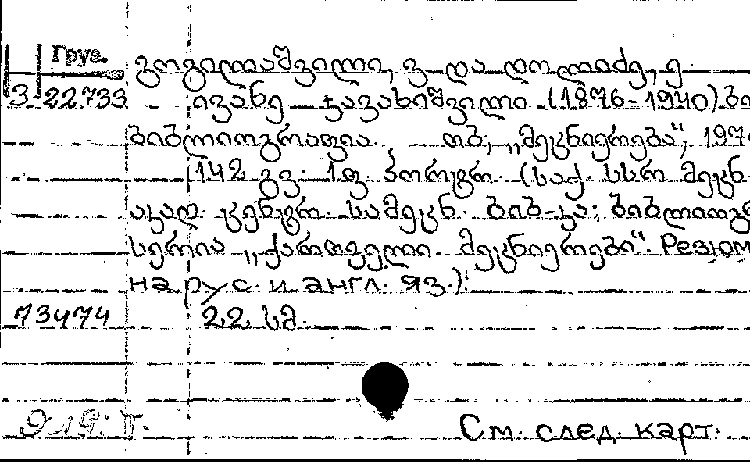 Груз.
გოგილაშვილი, ვ. და დოლიძე, ე.
3-22733 ივანე ჯავახიშვილი (1876-1940) ბი
ბიბლიოგრაფია. თბ., „მეცნიერება“, 197
142 გვ. 1 ფ. პორტრ. (საქ. სსრ მეცნ.
აკად. ცენტრ. სამეცნ. ბიბ-კა; ბიბლიოგ
სერია „ქართველი მეცნიერები“. Резюм
на рус. и англ. яз.).
73474 22 სმ.
См. след. карт.